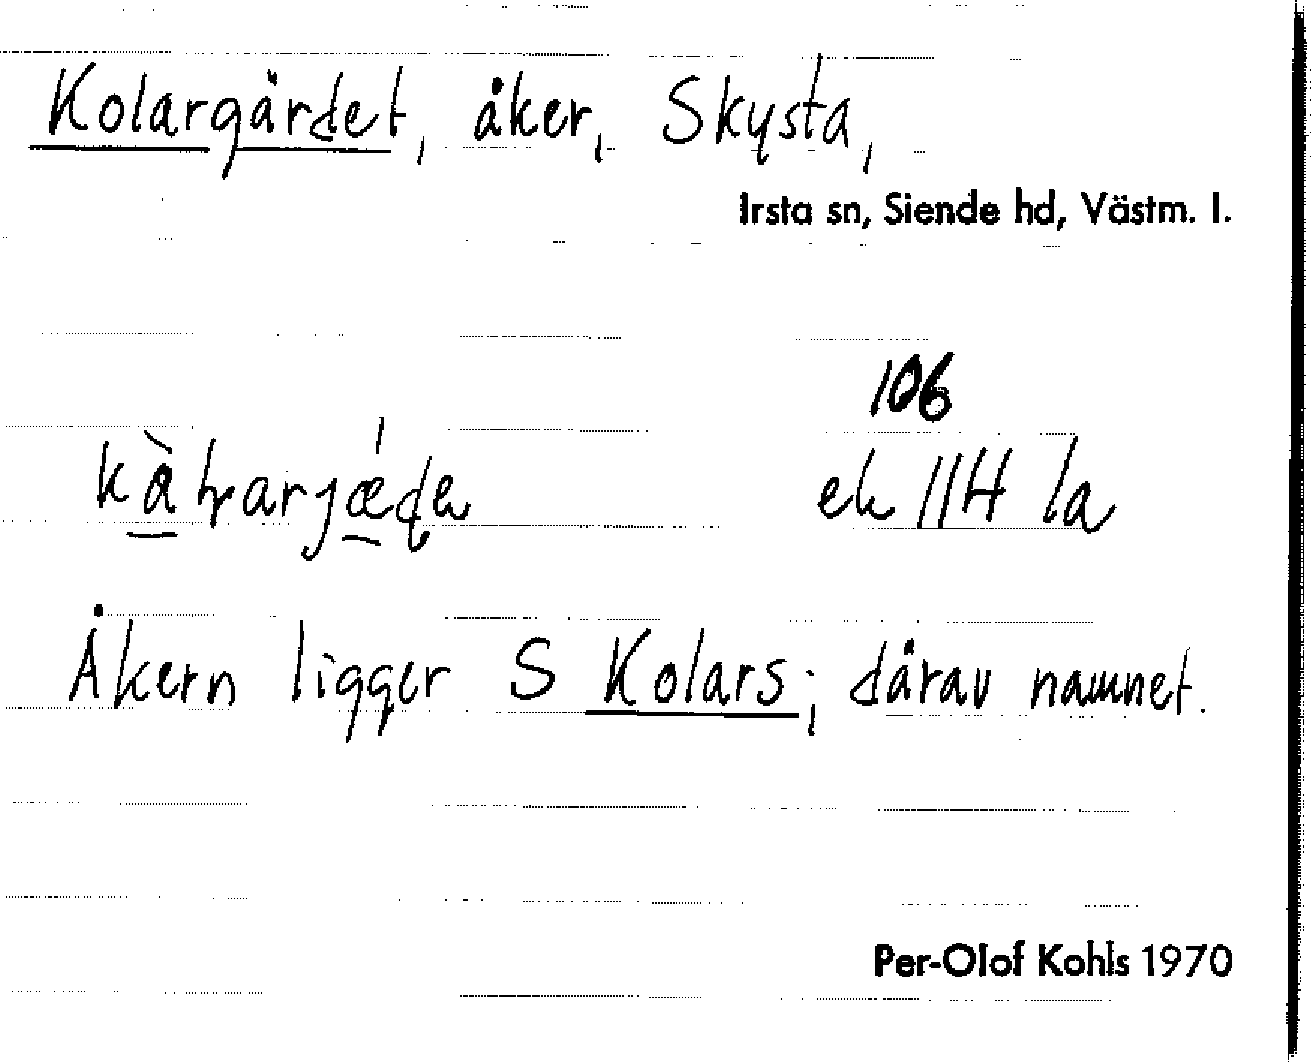 Kolargärdet, åker, Skysta,
Irsta sn, Siende hd, Västm. l.
106
ek 11H 1a
Åkern ligger S Kolars; därav namnet.
Per-Olof Kohls 1970